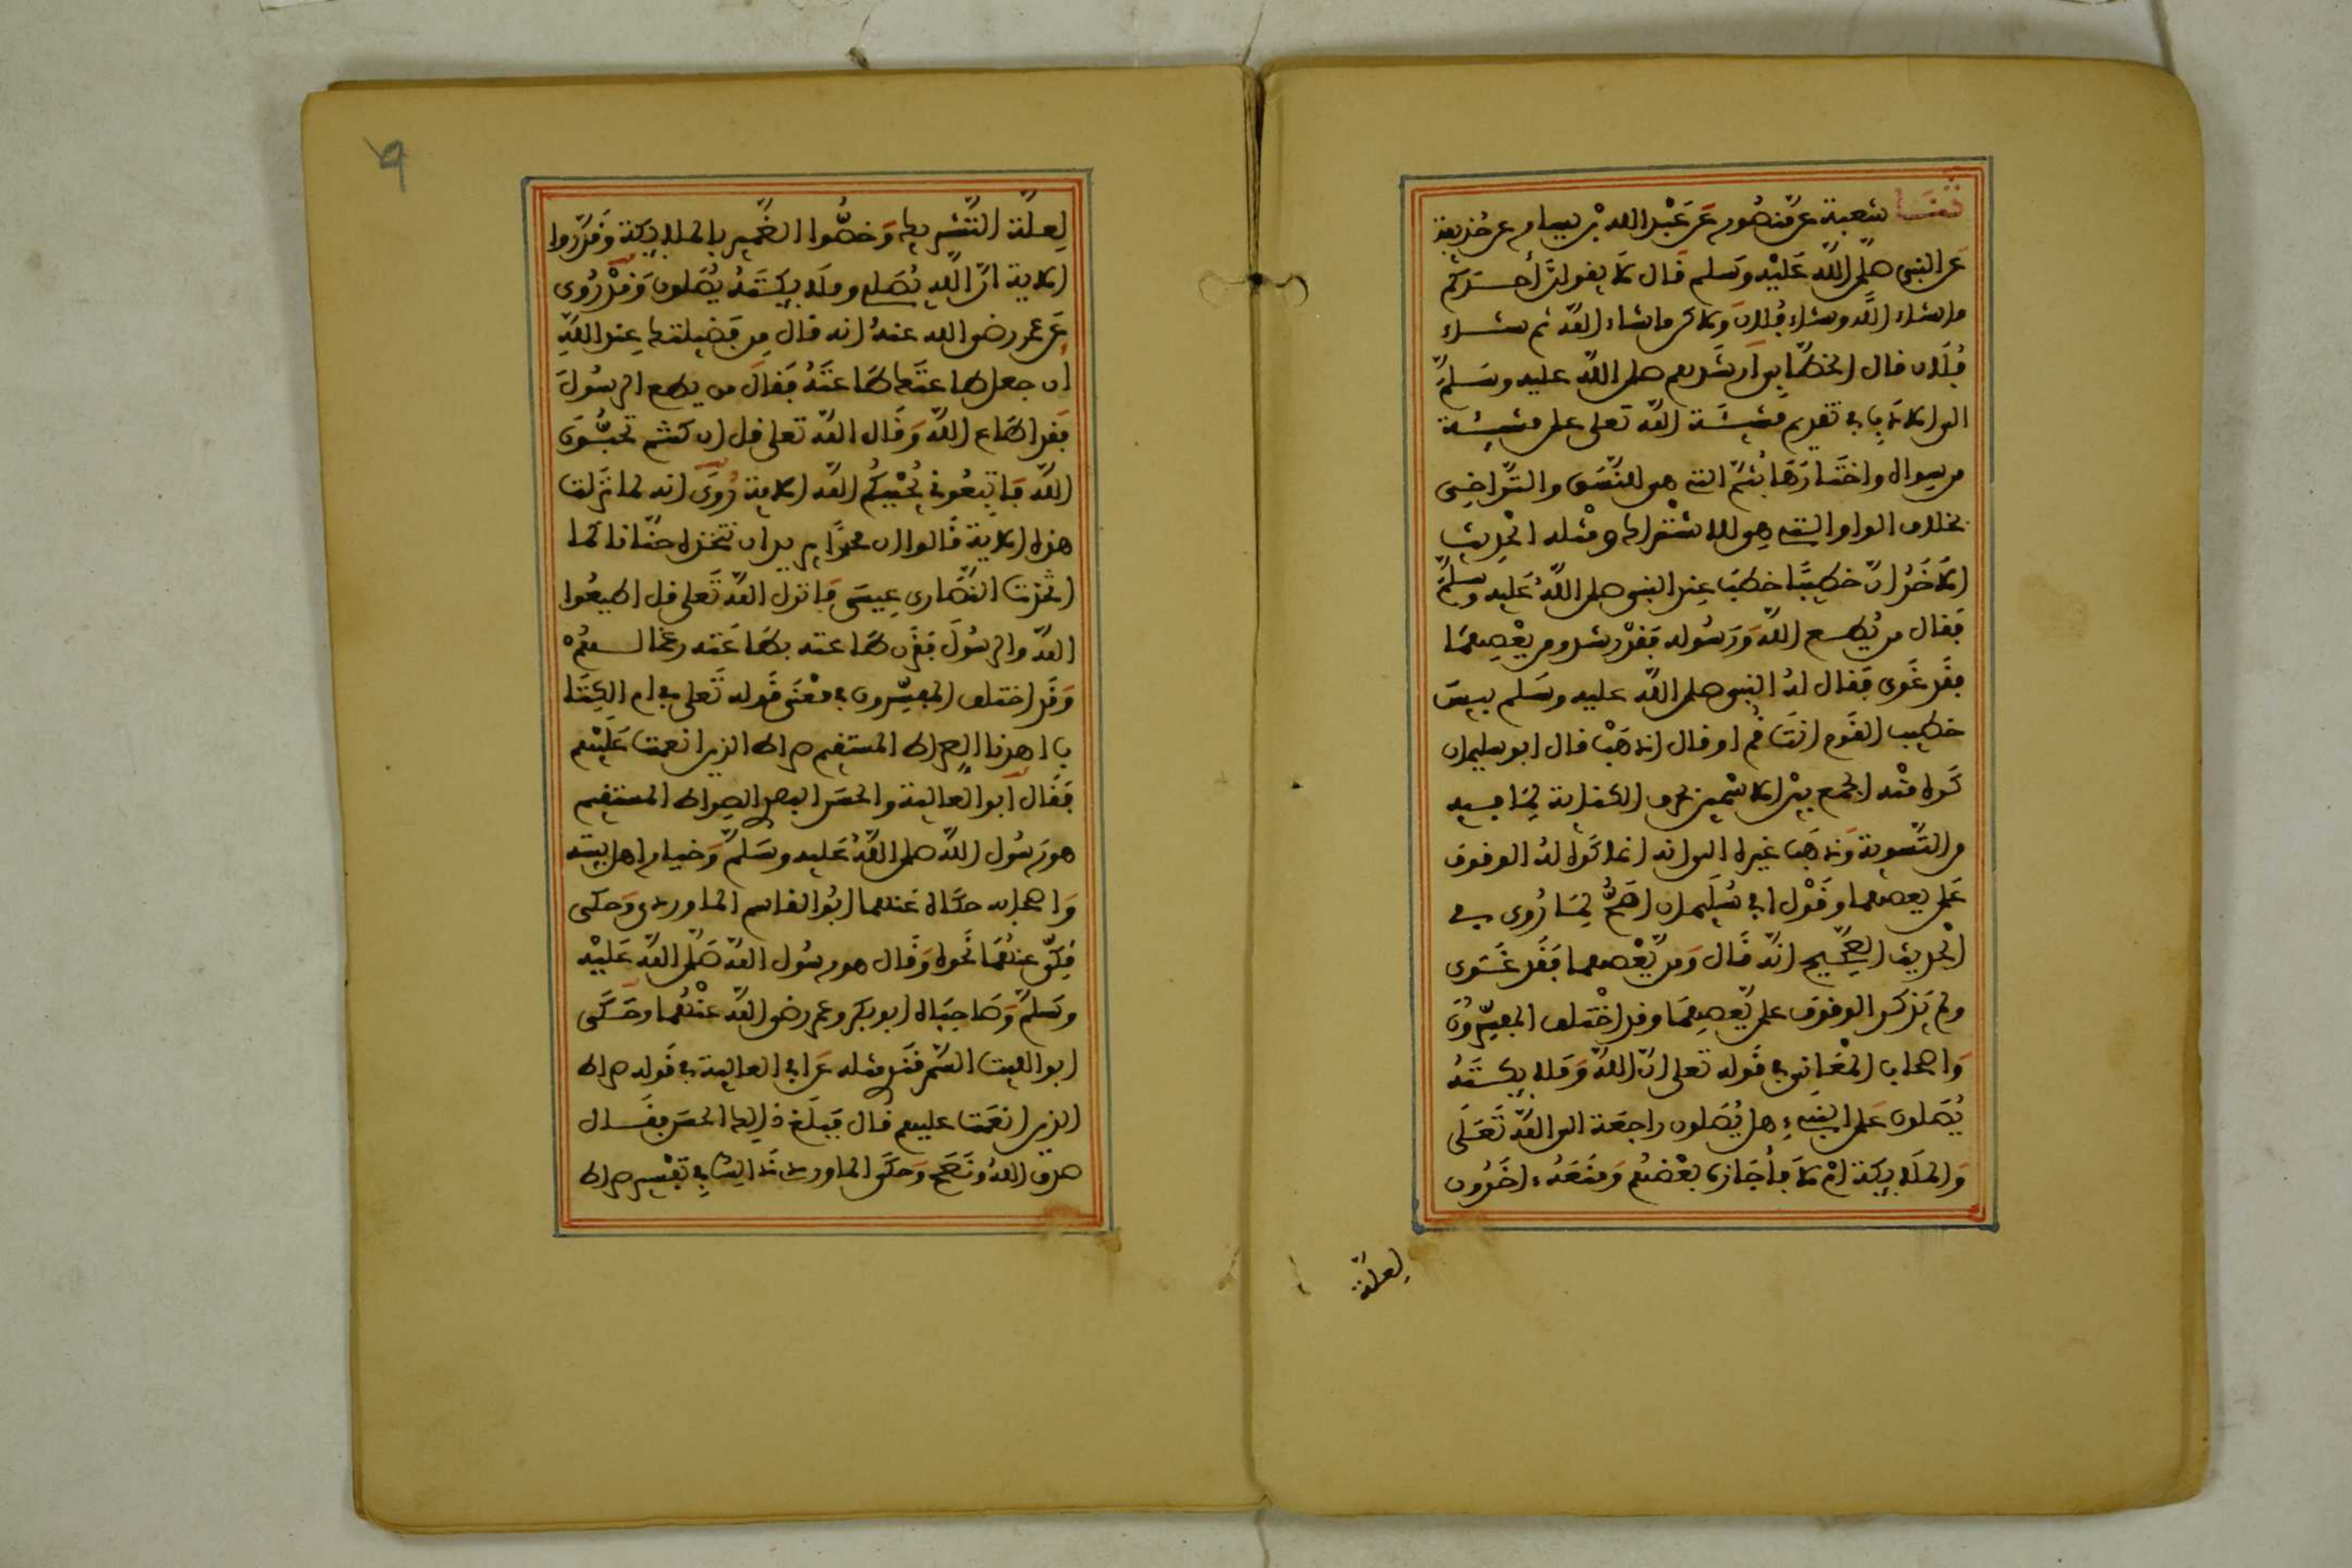 حدثنا شعبة عن منصور عن عبد الله بن يسار عن حذيفة
عن النبي صلى الله عليه وسلم قال لا يقولن أحدكم
ما شاء الله وشاء فلان ولاكن ما شاء الله ثم شاء
فلان قال الخطابي أرشدهم صلى الله عليه وسلم
الى الادب في تقديم مشيئة الله تعلى على مشيئة
من سواه واختارها بثم التي هي للنسق والتراخي
بخلاف الواو التي هي للاشتراك ومثله الحديث
الاخر ان خطيبا خطب عند النبي صلى الله عليه وسلم
فقال من يطع الله ورسوله فقد رشد ومن يعصهما
فقد غوى فقال له النبي صلى الله عليه وسلم بيس
خطيب القوم انت قم او قال اذهب قال ابو سليمان
كره منه الجمع بين الاسمين بحرف الكناية لما فيه
من التسوية وذهب غيره الى انه انما كره له الوقوف
على يعصهما وقول ابي سليمان اصح لما روي في
الحديث الصحيح انه قال ومن يعصهما فقد غوى
ولم يذكر الوقوف على يعصهما وقد اختلف المفسرون
واصحاب المعاني في قوله تعلى ان الله وملايكته
يصلون على النبيء هل يصلون راجعة الى الله تعلى
والملايكة ام لا فأجازه بعضهم ومنعه ءاخرون
لعلة
٩
لعلة التشريك وخصوا الضمير بالملايكة وقدروا
الاية ان الله يصلي وملايكته يصلون وقد روي
عن عمر رضي الله عنه انه قال من فضيلتك عند الله
أن جعل طاعتك طاعته فقال من يطع الرسول
فقد اطاع الله وقال الله تعلى قل ان كنتم تحبون
الله فاتبعوني يحببكم الله الاية روي انه لما نزلت
هذه الاية قالوا ان محمدا يريد ان نتخذه حنانا كما
اتخذت النصارى عيسى فانزل الله تعلى قل اطيعوا
الله والرسول فقرن طاعته بطاعته رغما لهم
وقد اختلف المفسرون في معنى قوله تعلى في ام الكتا
ب اهدنا الصراط المستقيم صراط الذين انعمت عليهم
فقال أبو العالية والحسن البصري الصراط المستقيم
هو رسول الله صلى الله عليه وسلم وخيار اهل بيته
واصحابه حكاه عنهما ابو الحسن الماوردي وحكى
مكي عنهما نحوه وقال هو رسول الله صلى الله عليه
وسلم وصاحباه ابو بكر وعمر رضي الله عنهما وحكى
ابو الليث السمرقندي مثله عن ابي العالية في قوله صراط
الذين انعمت عليهم قال فبلغ ذلك الحسن فقال
صدق الله ونصح وحكى الماوردي ذلك في تفسير صراط